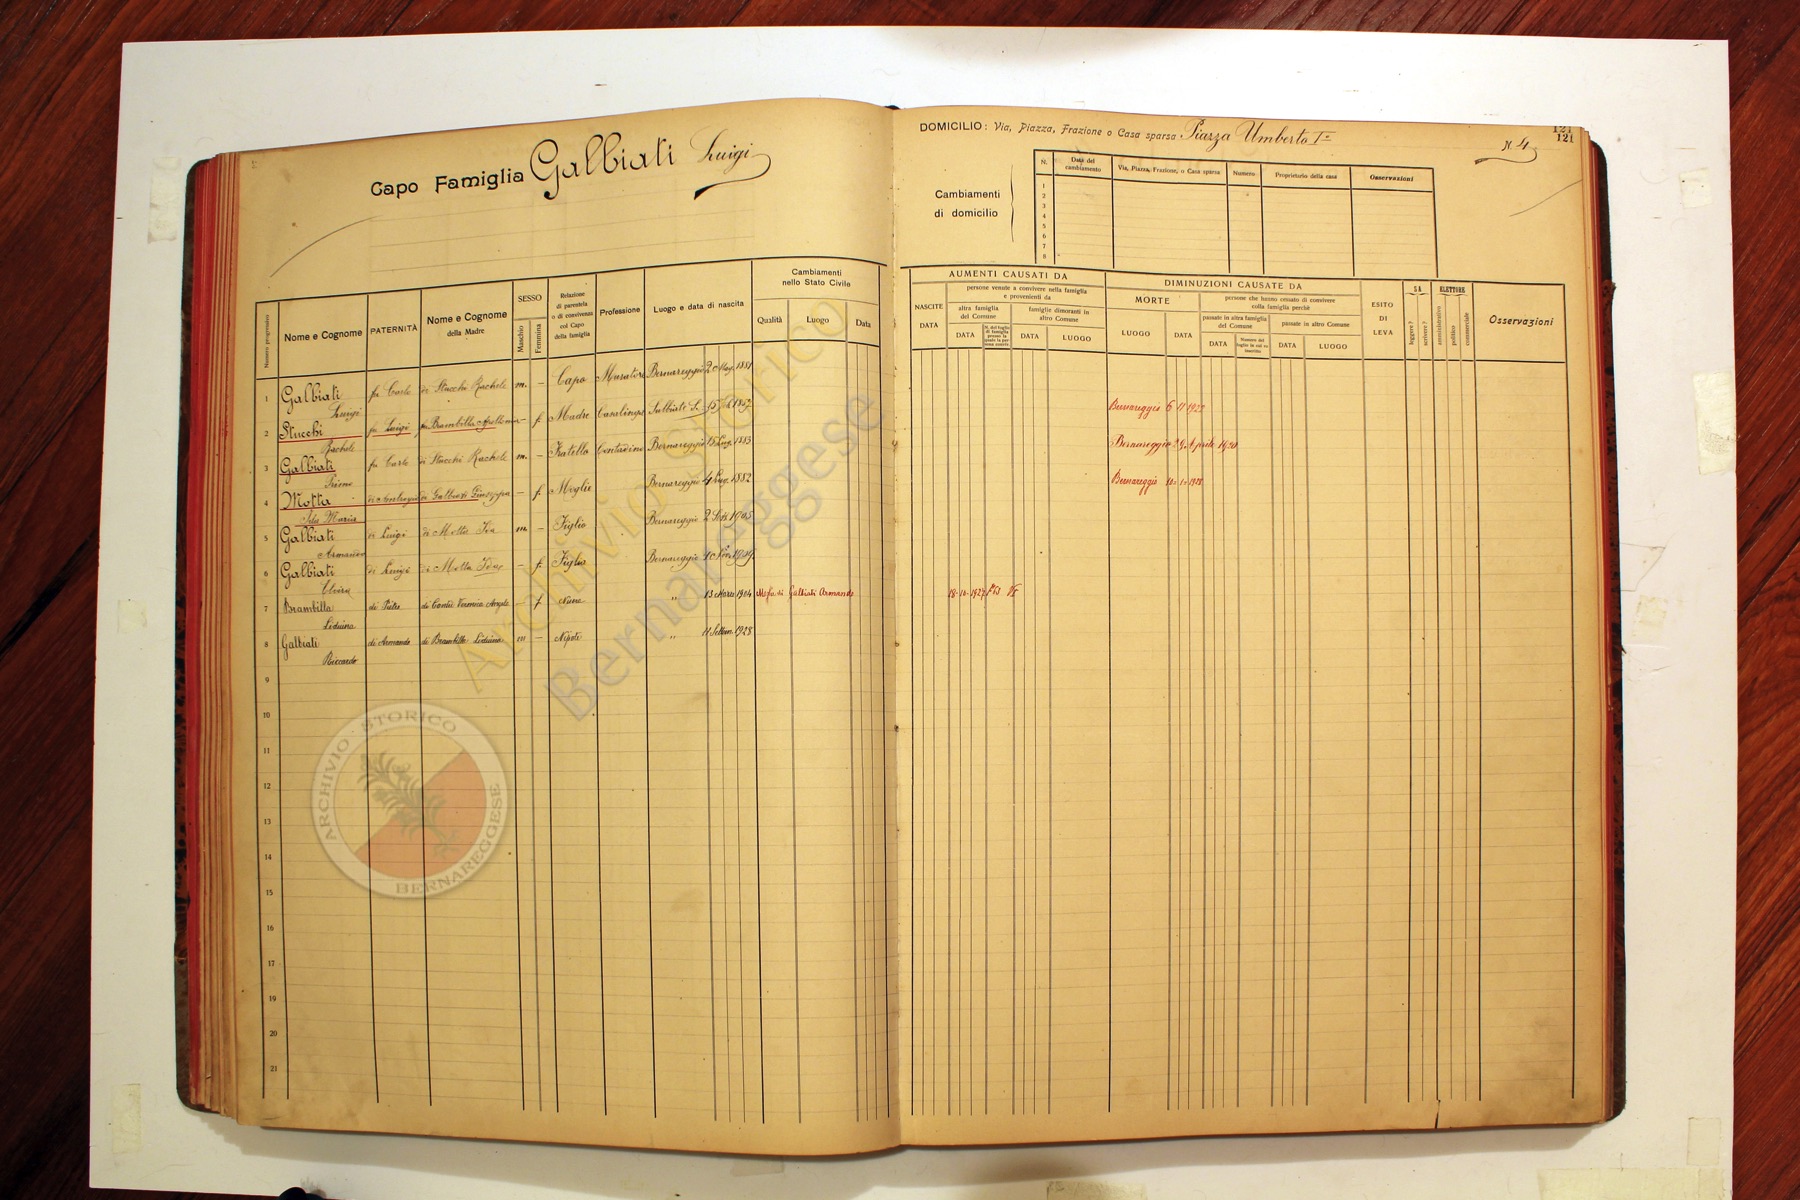 Capo Famiglia Galbiati Luigi
Numero progressivo
Nome e Cognome
PATERNITÀ
Nome e Cognome
della Madre
SESSO
Maschio
Femmina
Relazione
di parentela
o di convivenza
col Capo
della famiglia
Professione
Luogo e data di nascita
Cambiamenti
nello Stato Civile
Qualità
Luogo
Data
1 Galbiati fu Carlo di Stucchi Rachele m. – Capo Muratore Bernareggio 2 Mag. 1881
Luigi
2 Stucchi fu Luigi fu Brambilla Apollonia – f. Madre Casalinga Sulbiate
Rachele
3 Galbiati fu Carlo di Stucchi Rachele m. – Fratello Contadino Bernareggio 15 1883
4 Motta di Galbiati Giuseppa – f. Moglie Bernareggio 4 1882
Ida Maria
5 Galbiati di Luigi di Motta Ida m. – Figlio Bernareggio 2 1905
Armando
6 Galbiati di Luigi di Motta Ida – f. Figlia Bernareggio
Elvira
7 Brambilla di Pietro di Cantù Veronica Angela – f. Nuora " 13 Marzo 1904 Moglie di Galbiati Armando
Liduina
8 Galbiati di Armando di Brambilla Liduina m – Nipote " 11 Settem. 1928
Riccardo
9
10
11
12
13
14
15
16
17
18
19
20
21
DOMICILIO: Via, Piazza, Frazione o Casa sparsa Piazza Umberto I°
N 4
121
121
Cambiamenti
di domicilio
N.
Data del
cambiamento
Via, Piazza, Frazione, o Casa sparsa
Numero
Proprietario della casa
Osservazioni
1
2
3
4
5
6
7
8
AUMENTI CAUSATI DA
NASCITE
DATA
persone venute a convivere nella famiglia
e provenienti da
altra famiglia
del Comune
DATA
N. del foglio
di famiglia
famiglie dimoranti in
altro Comune
DATA
LUOGO
DIMINUZIONI CAUSATE DA
MORTE
LUOGO
DATA
persone che hanno cessato di convivere
colla famiglia perchè
passate in altra famiglia
del Comune
DATA
Numero del
foglio in cui va
inscritto
passate in altro Comune
DATA
LUOGO
ESITO
DI
LEVA
SA
leggere?
scrivere?
ELETTORE
amministrativo
politico
commerciale
Osservazioni
Bernareggio 6 11 1922
Bernareggio 29 Aprile 1920
Bernareggio 10-1-1918
18-10-1927
Archivio Storico
Bernareggese
ARCHIVIO STORICO
BERNAREGGESE